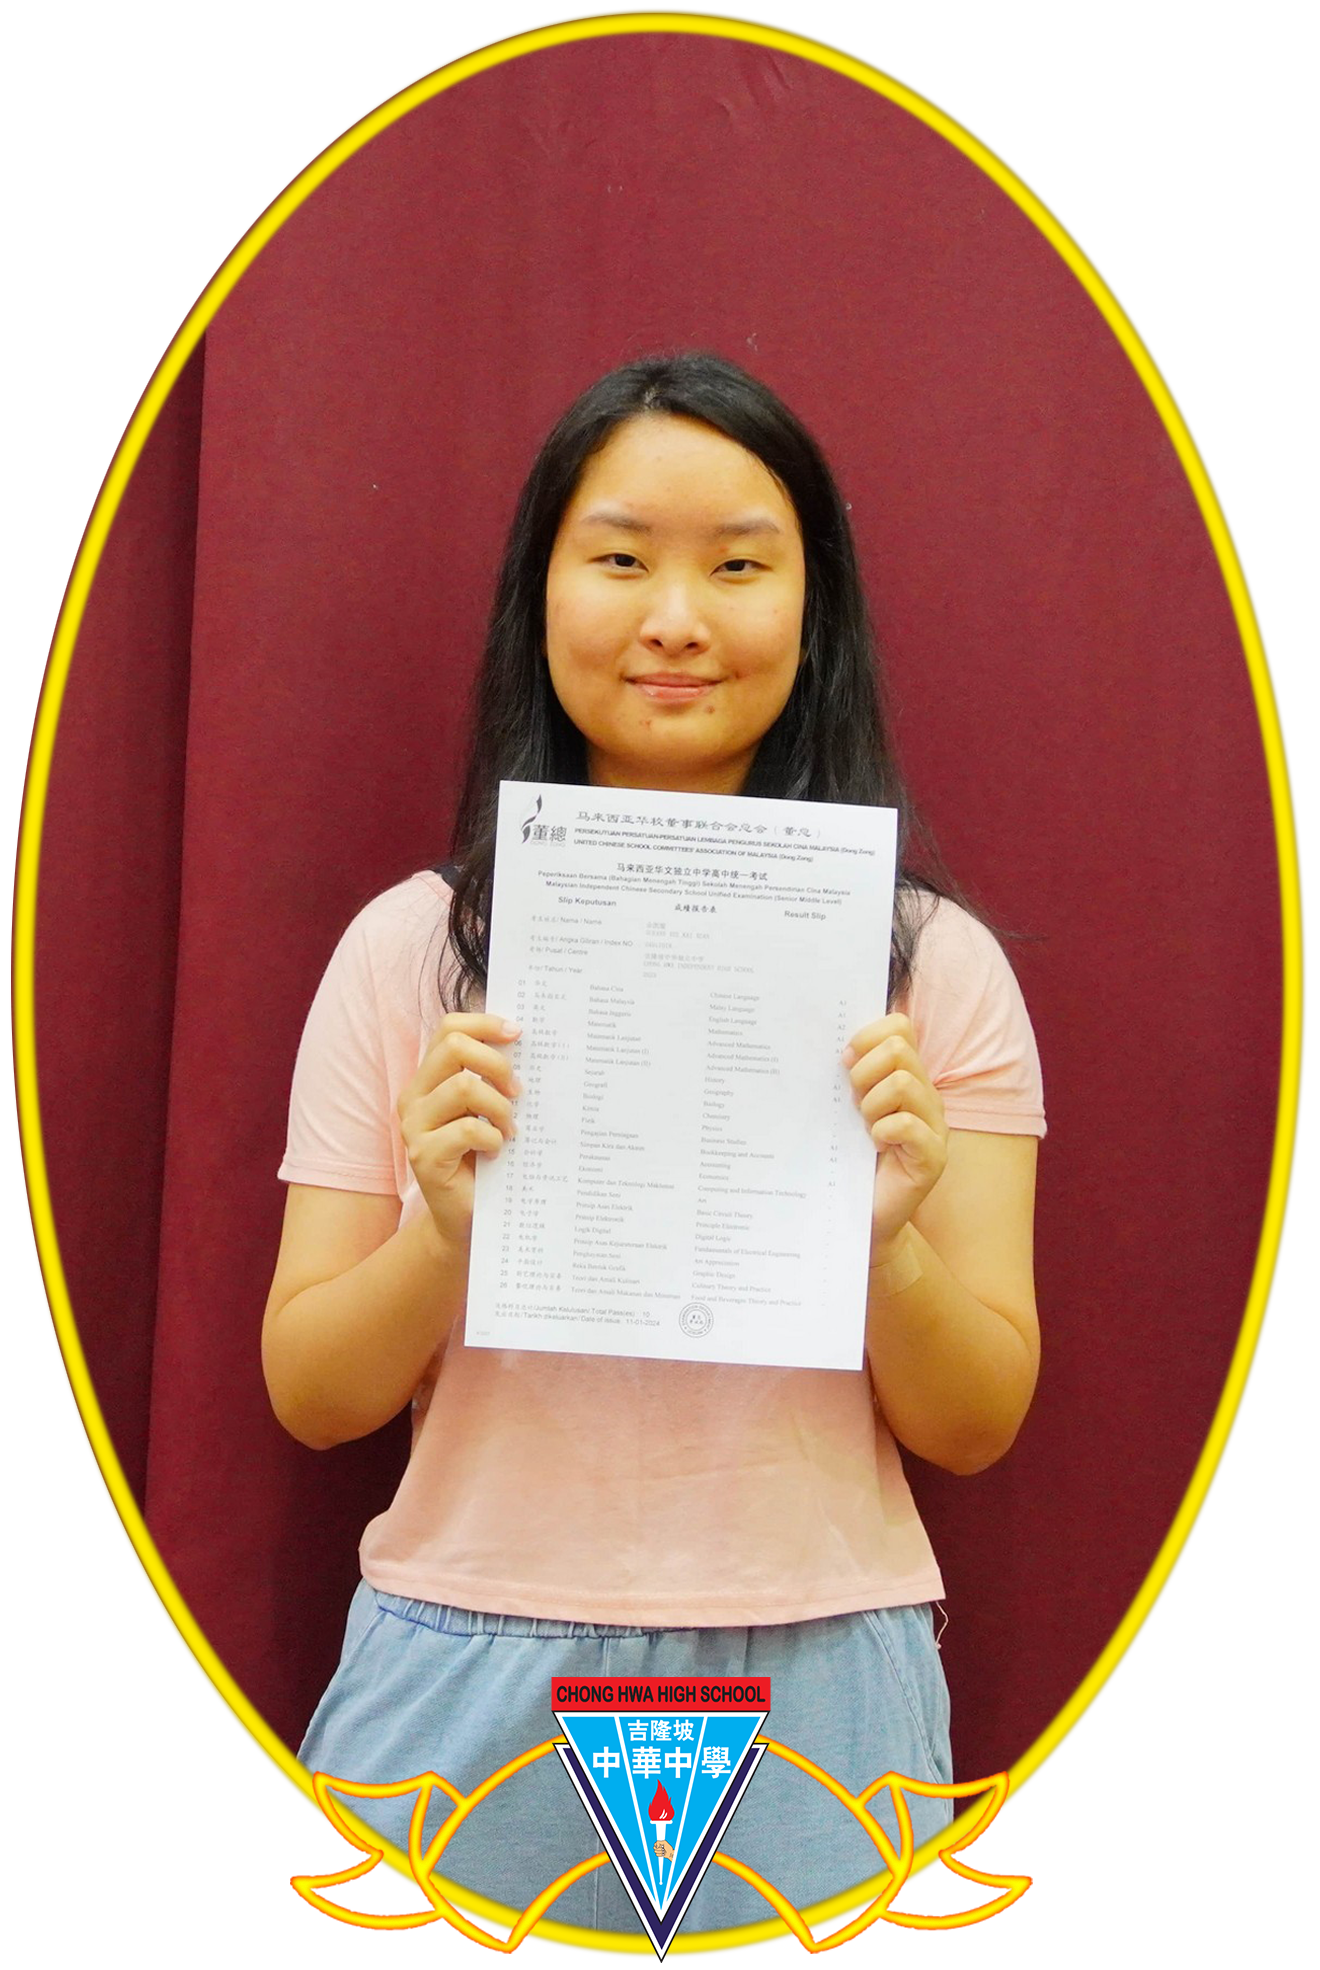 董總
马来西亚华校董事联合会总会（董总）
PERSEKUTUAN PERSATUAN-PERSATUAN LEMBAGA PENGURUS SEKOLAH CINA MALAYSIA (Dong Zong)
UNITED CHINESE SCHOOL COMMITTEES' ASSOCIATION OF MALAYSIA (Dong Zong)
马来西亚华文独立中学高中统一考试
Peperiksaan Bersama (Bahagian Menengah Tinggi) Sekolah Menengah Persendirian Cina Malaysia
Malaysian Independent Chinese Secondary School Unified Examination (Senior Middle Level)
Slip Keputusan 成绩报告表 Result Slip
考生姓名/ Nama / Name
考生编号/ Angka Giliran / Index NO
考场/ Pusat / Centre 吉隆坡中华独立中学
CHONG HWA INDEPENDENT HIGH SCHOOL
年份/ Tahun / Year
01 华文 Bahasa Cina Chinese Language A1
02 马来西亚文 Bahasa Malaysia Malay Language A1
03 英文 Bahasa Inggeris English Language A2
04 数学 Matematik Mathematics
高级数学 Matematik Lanjutan Advanced Mathematics
06 高级数学(I) Matematik Lanjutan (I) Advanced Mathematics (I)
07 高级数学(II) Matematik Lanjutan (II) Advanced Mathematics (II)
08 历史 Sejarah History
地理 Geografi Geography
生物 Biologi Biology
化学 Kimia Chemistry
物理 Fizik Physics
商业学 Pengajian Perniagaan Business Studies
14 簿记与会计 Simpan Kira dan Akaun Bookkeeping and Accounts
15 会计学 Perakaunan Accounting
16 经济学 Ekonomi Economics
17 电脑与资讯工艺 Komputer dan Teknologi Maklumat Computing and Information Technology
18 美术 Pendidikan Seni Art
19 电学原理 Prinsip Asas Elektrik Basic Circuit Theory
20 电子学 Prinsip Elektronik Principle Electronic
21 数位逻辑 Logik Digital Digital Logic
22 电机学 Prinsip Asas Kejuruteraan Elektrik Fundamentals of Electrical Engineering
23 美术赏析 Penghayatan Seni Art Appreciation
24 平面设计 Reka Bentuk Grafik Graphic Design
25 Teori dan Amali Kulinari Culinary Theory and Practice
26 餐饮理论与实务 Teori dan Amali Makanan dan Minuman Food and Beverages Theory and Practice
(Jumlah Kelulusan/ Total Passes) : 10
/Tarikh dikeluarkan/ Date of issue : 11-01-2024
CHONG HWA HIGH SCHOOL
吉隆坡
中華中學